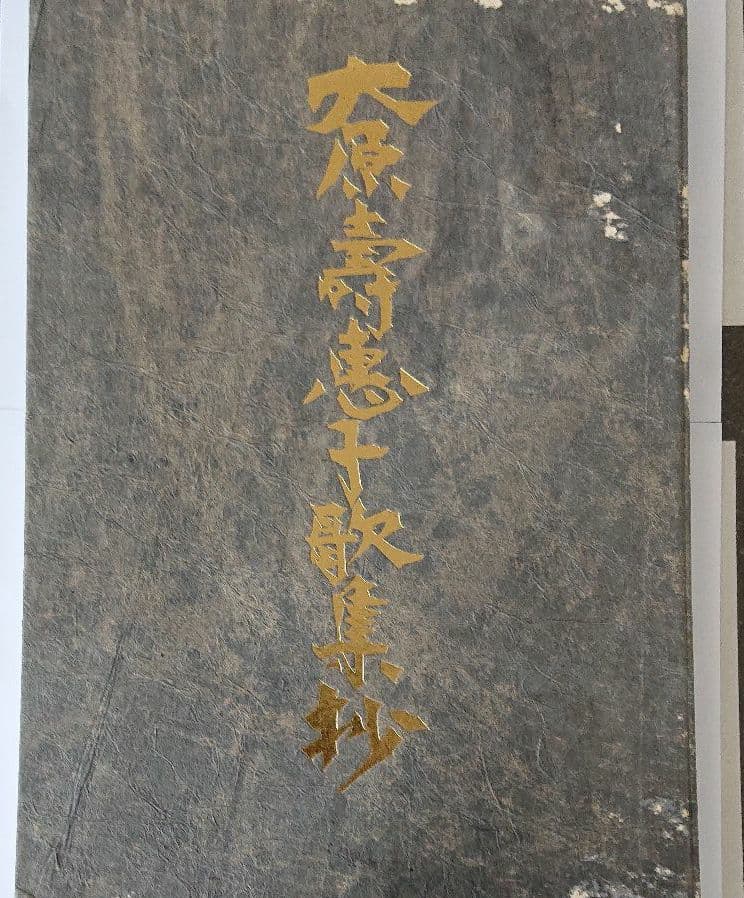 大原壽恵子歌集抄